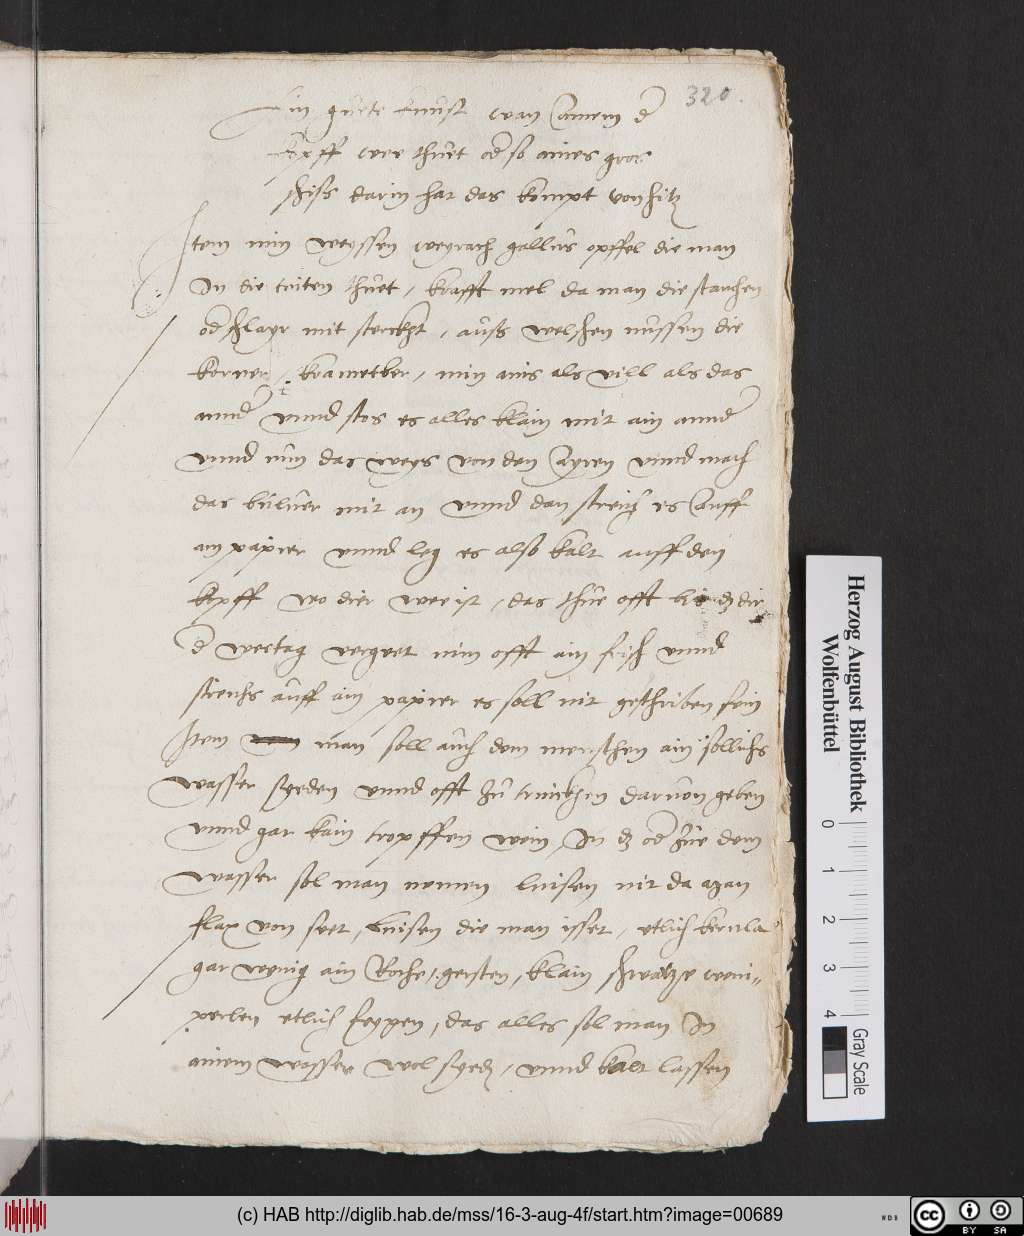 320.
Ein guete kunst wan ainem d
kopff wee thuet od so aines gros
hiss darin hat das kompt von hitz
Item nim weyssen weyrach gallus opffel die man
In die tniten thuet, krafft mel da man die stauchen
od schlayr mit sterckht, auss welschen nussen die
kerner, kramettber, nim ains als vill als das
annd vnnd stos es alles klain mit ain annd
vnnd nim das weys von den ayren vnnd mach
das buluer mit an vnnd dan streich es auff
ain papier vnnd leg es also kalt auff den
kopff wo dier wee ist, das thue offt bis dz dir
d weetag verget nim offt ain frisch vnnd
streichs auff ain papier es soll nit gethriben sein
Item man soll auch dem menschen ain sollichs
wasser syeden vnnd offt zu trinckhen daruon geben
vnnd gar kain tropffen wein, In dz od zue dem
wasser sol man nemen linsen nit da man
flax von seet, Linsen die man isset, etlich kernla
gar wenig ain Roche, gersten, klain schwartze wein-
perlen etlich feygen, das alles sol man In
ainem wasser wol syedn, vnnd kalt lassen
Herzog August Bibliothek
Wolfenbüttel
0 1 2 3 4
Gray Scale
(c) HAB http://diglib.hab.de/mss/16-3-aug-4f/start.htm?image=00689
WDB
cc BY SA